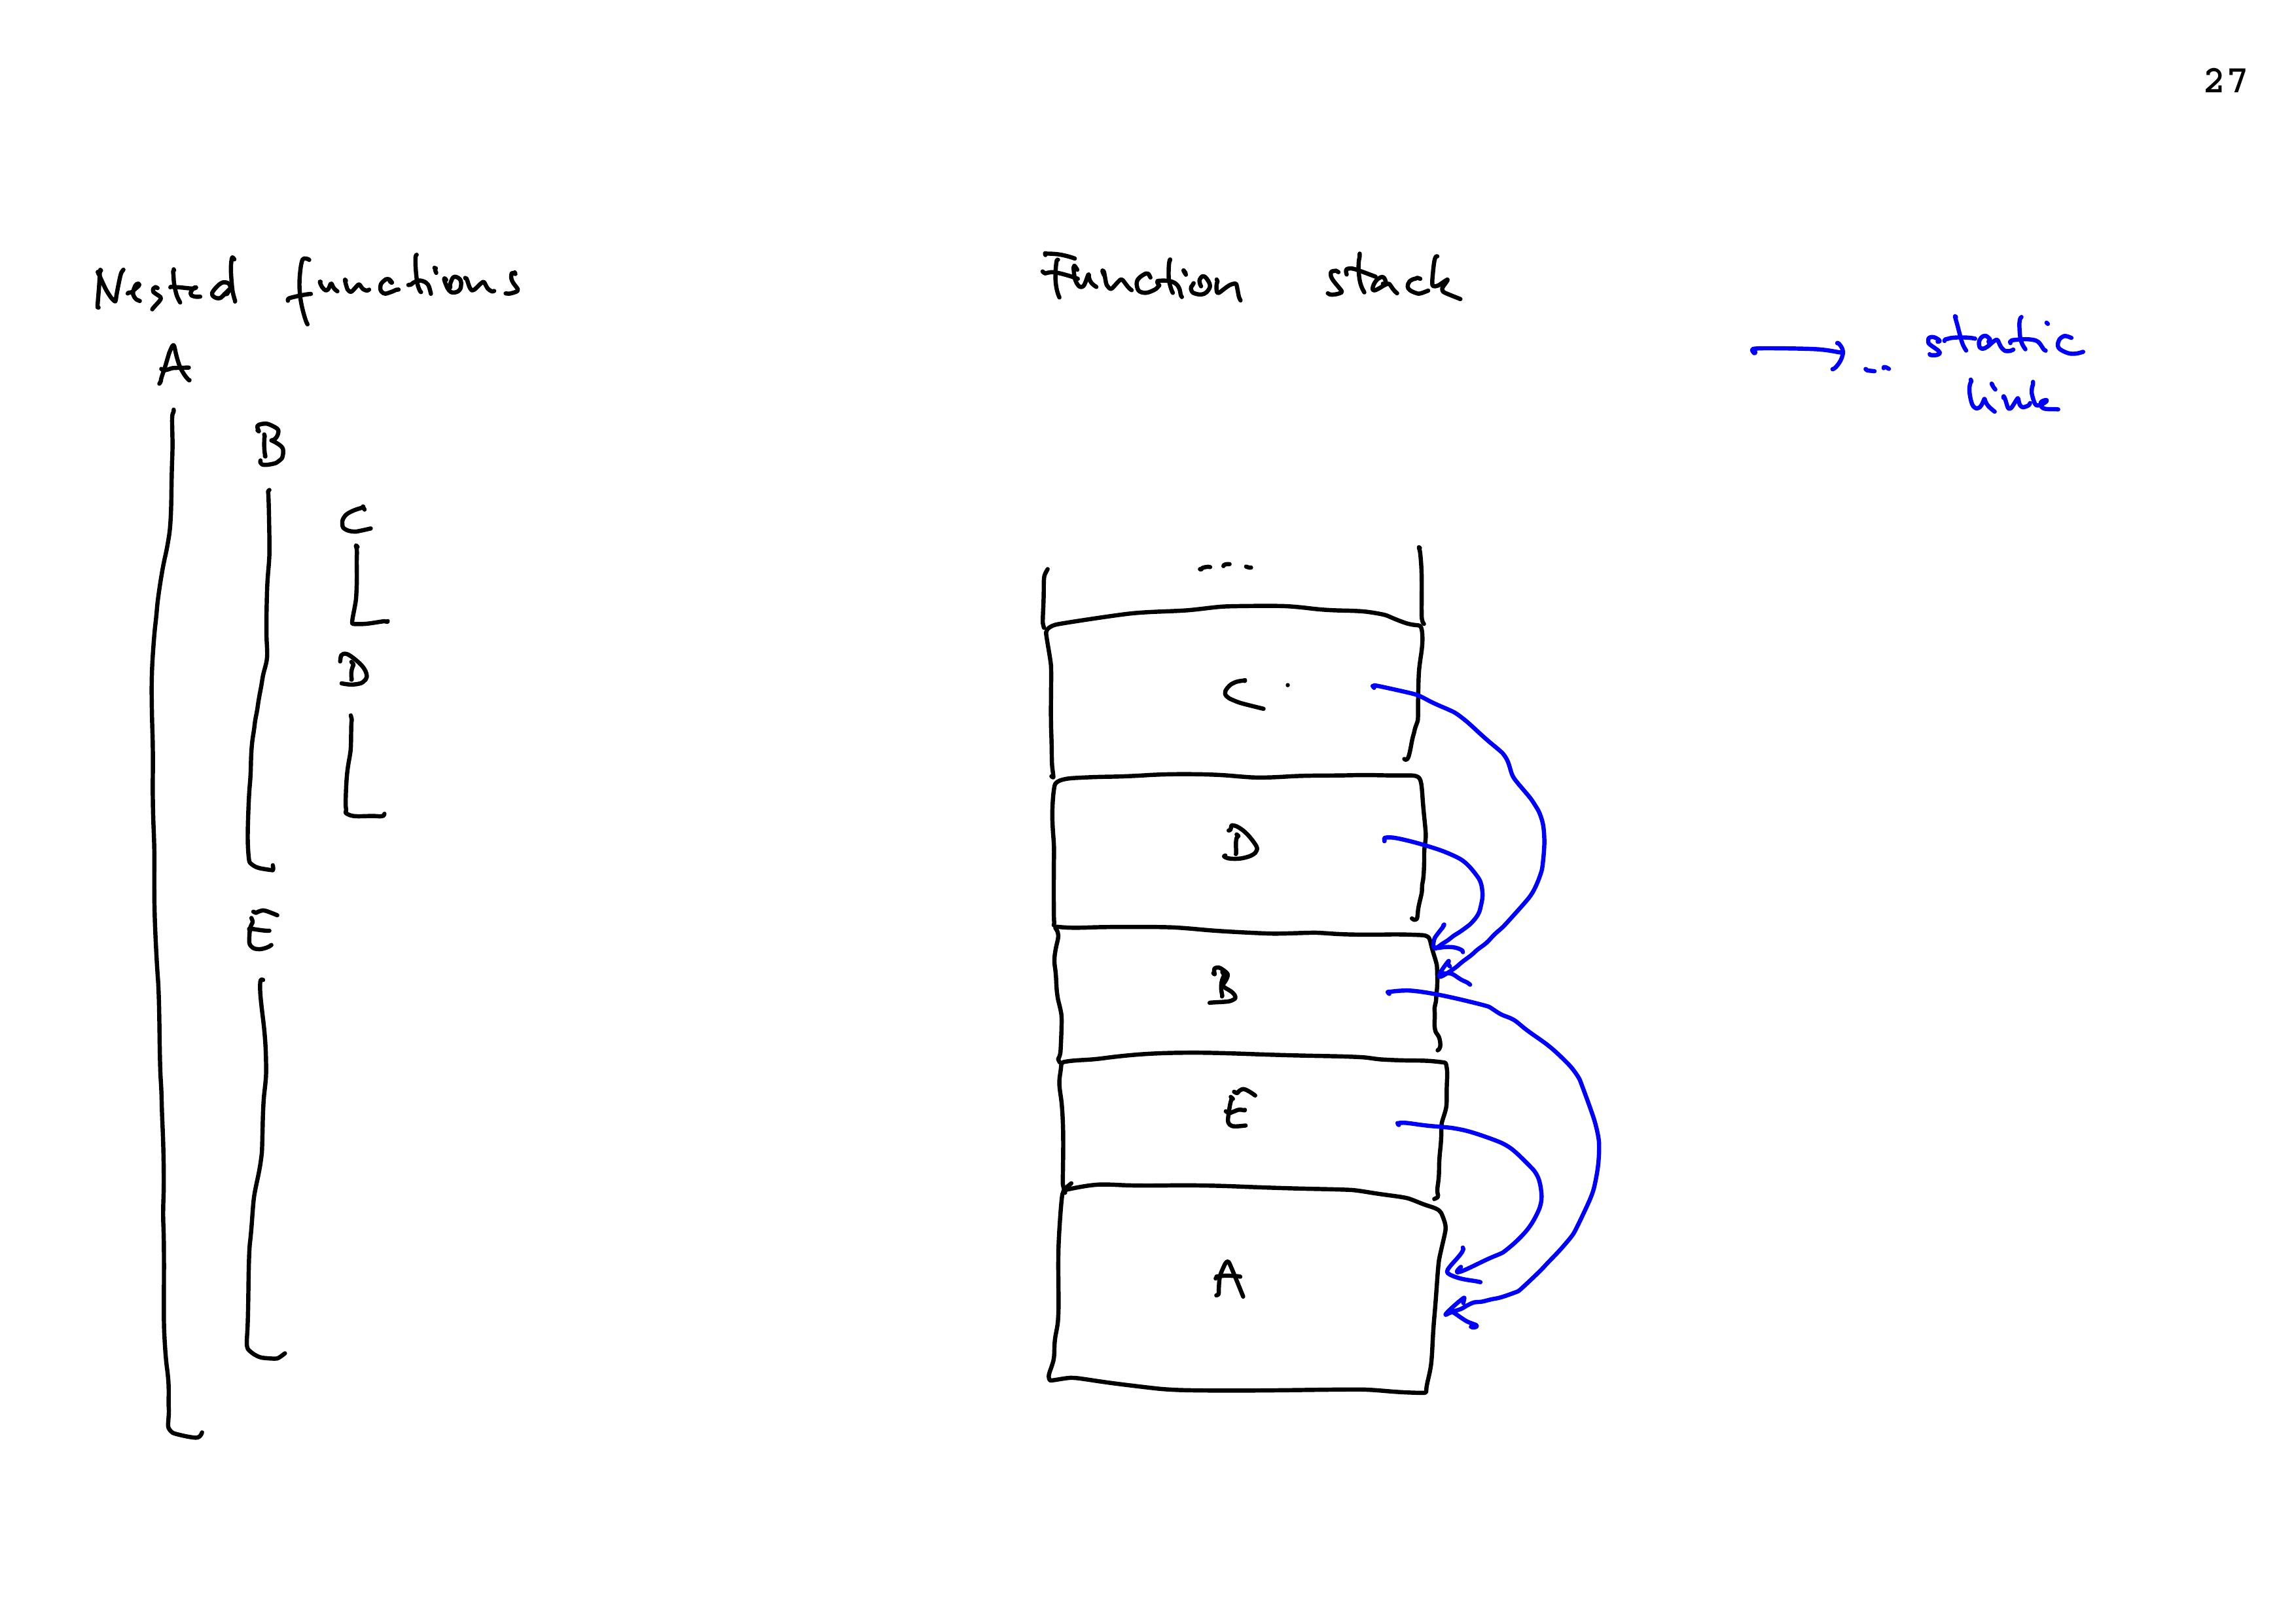 27
Nested functions
A
B
C
D
E
Function stack
...
C
D
B
E
A
... static
link